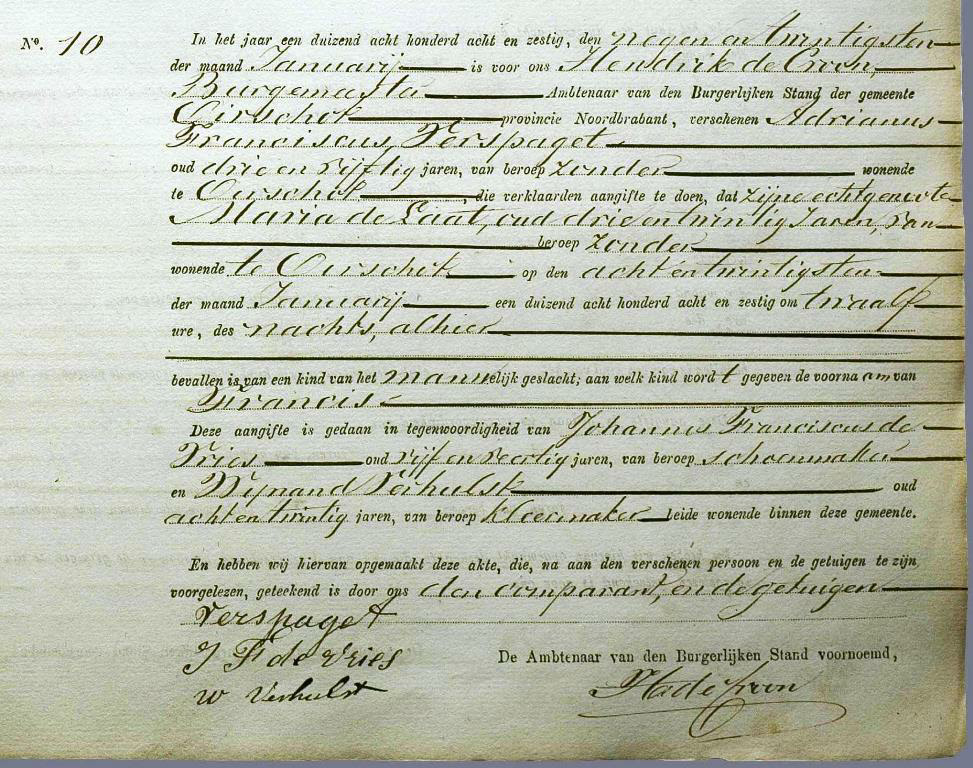 No. 10
In het jaar een duizend acht honderd acht en zestig, den negen en twintigsten
der maand Januarij is voor ons Hendrik de Croon,
Burgemeester Ambtenaar van den Burgerlijken Stand der gemeente
Oirschot provincie Noordbrabant, verschenen Adrianus
Franciscus Verspaget
oud drie en vijftig jaren, van beroep zonder wonende
te Oirschot, die verklaarden aangifte te doen, dat zijne echtgenoote
Maria de Laat, oud drie en twintig Jaren, van
beroep zonder
wonende te Oirschot op den acht en twintigsten
der maand Januarij een duizend acht honderd acht en zestig om twaalf
ure, des nachts, alhier
bevallen is van een kind van het mannelijk geslacht; aan welk kind wordt gegeven de voornaam van
Francis
Deze aangifte is gedaan in tegenwoordigheid van Johannes Franciscus de
Vries oud vijf en veertig jaren, van beroep schoenmaker
en Wijnand Verhulst oud
acht en twintig jaren, van beroep kleermaker beide wonende binnen deze gemeente.
En hebben wij hiervan opgemaakt deze akte, die, na aan den verschenen persoon en de getuigen te zijn
voorgelezen, geteekend is door ons den comparant, en de getuigen
Verspaget
J F de Vries
W Verhulst
De Ambtenaar van den Burgerlijken Stand voornoemd,
H de Croon